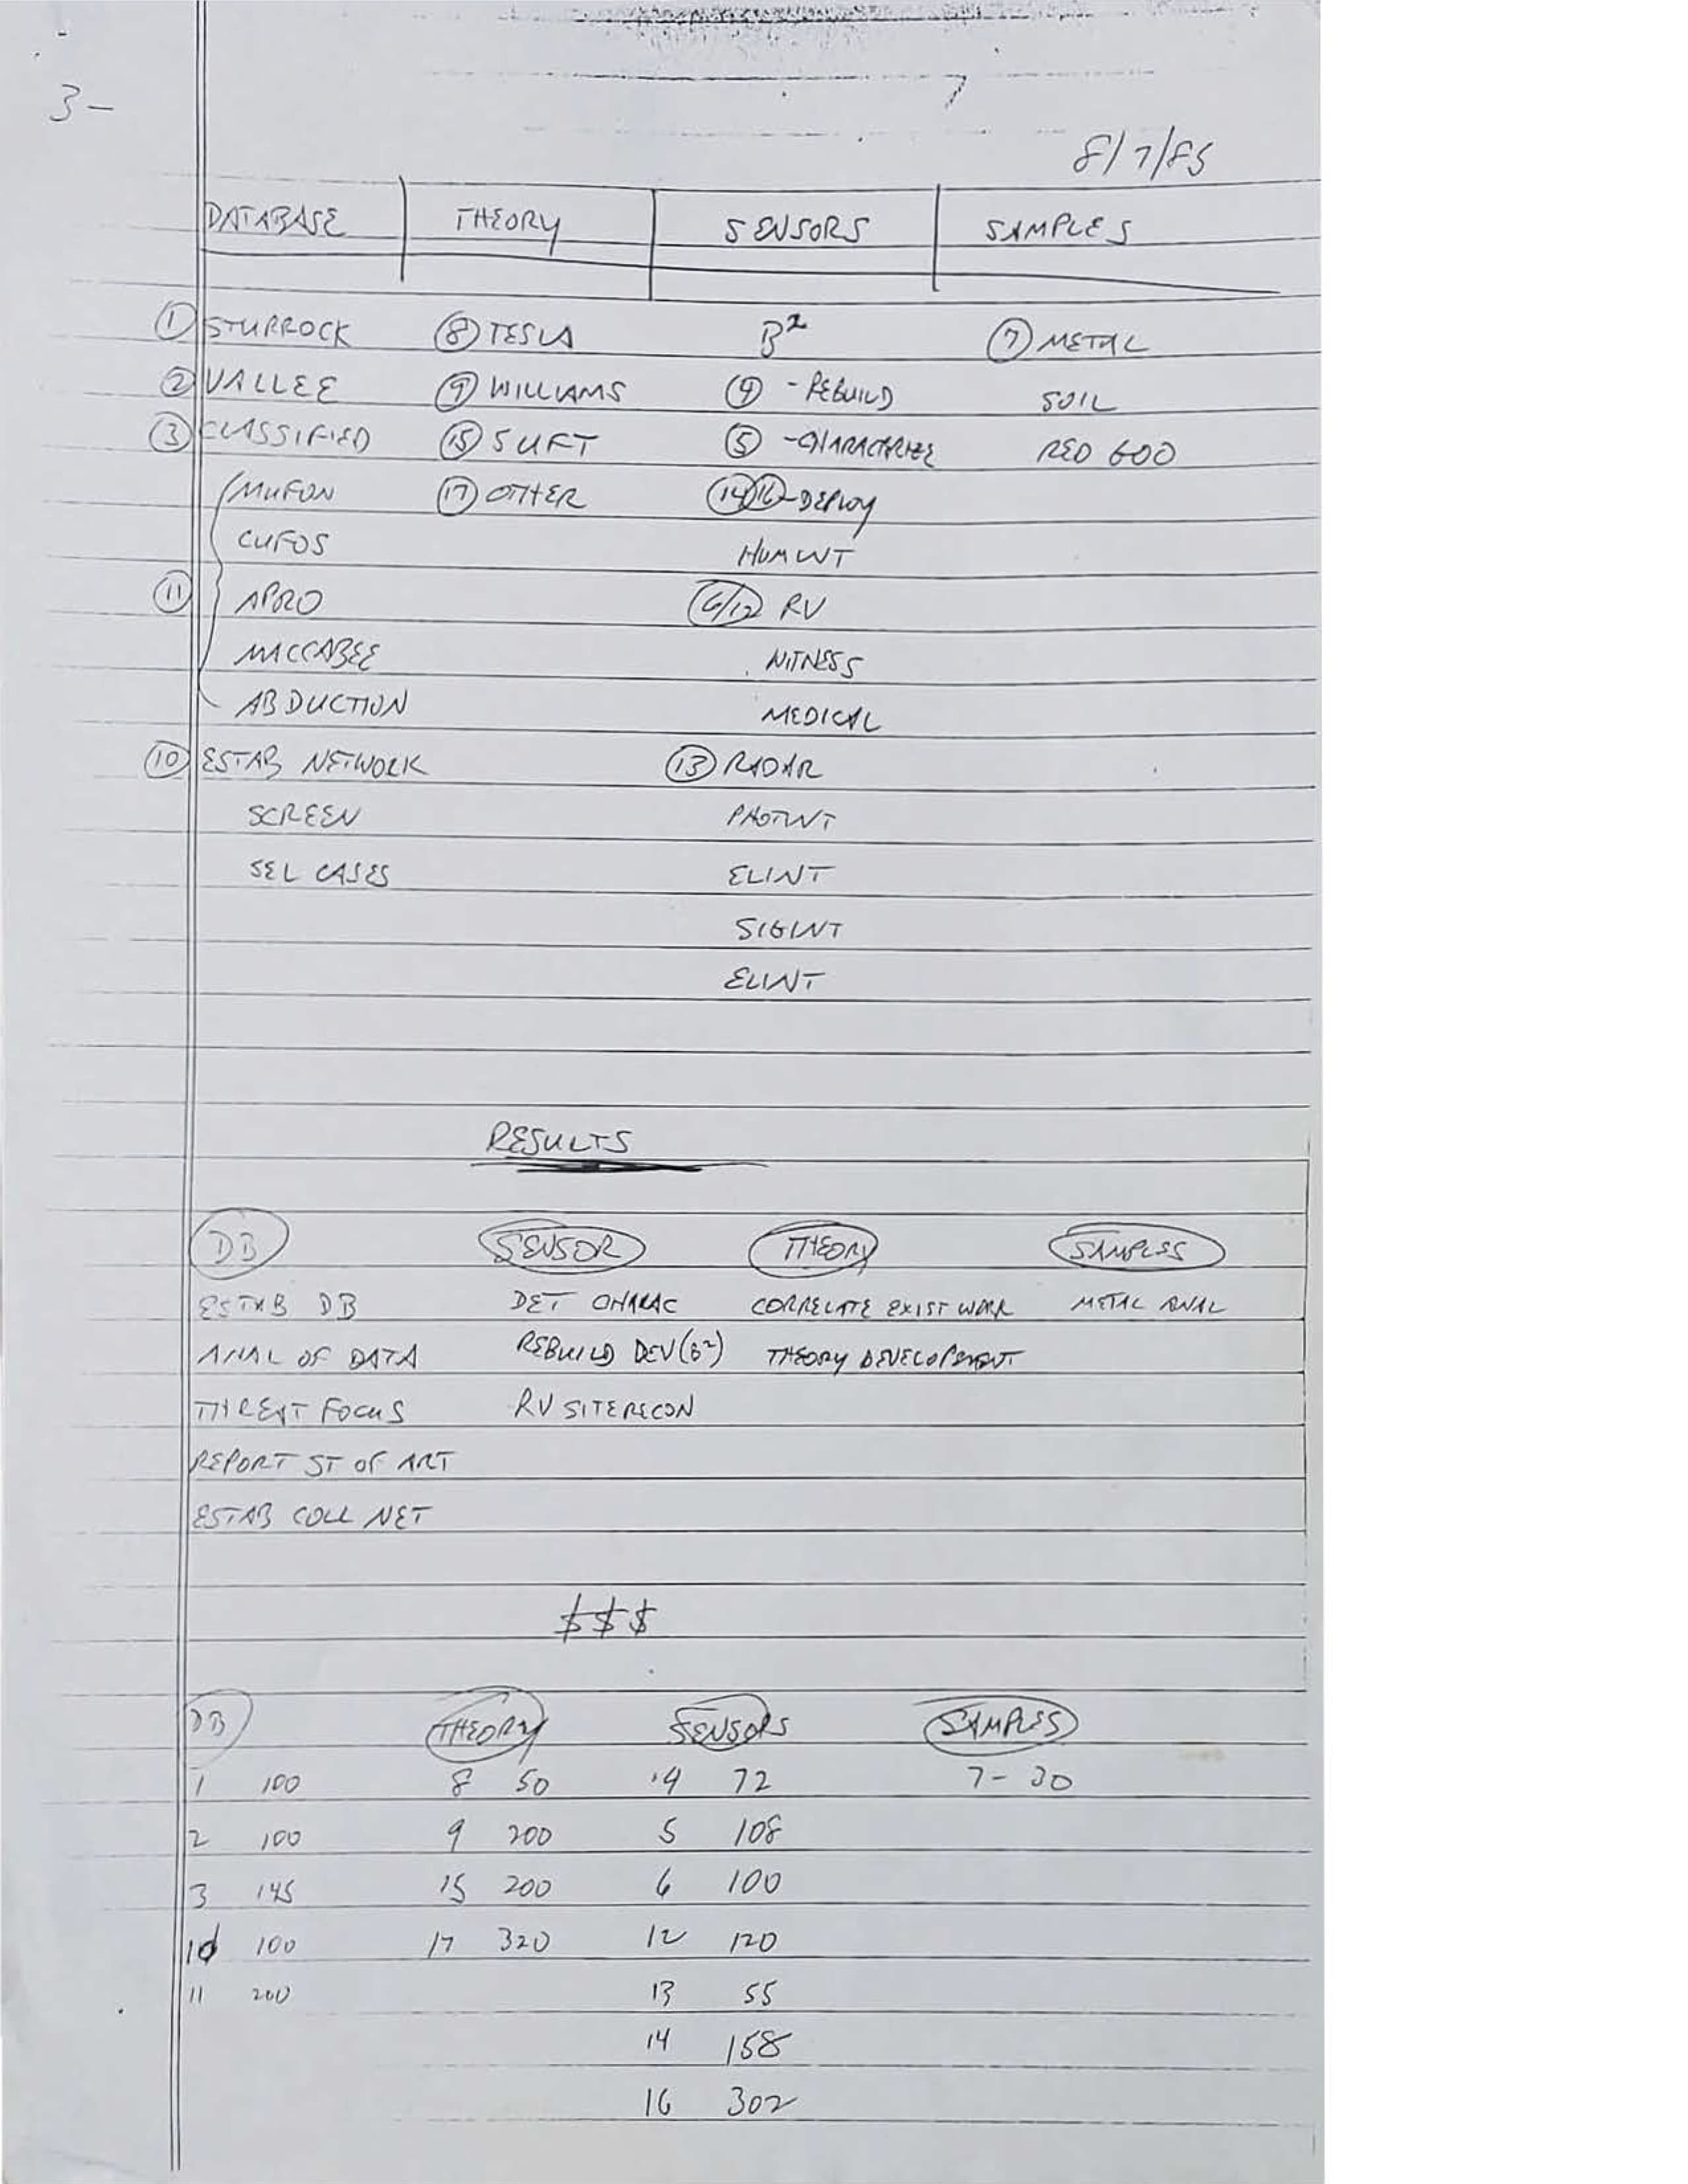 3-
7
8/7/85
DATABASE THEORY SENSORS SAMPLES
① STURROCK ⑧ TESLA B² ⑦ METAL
② VALLEE ⑨ WILLIAMS ④ -REBUILD SOIL
③ CLASSIFIED ⑮ SUFT ⑤ -CHARACTERIZE RED GOO
MUFON ⑰ OTHER ⑭⑯-DEPLOY
CUFOS HUMINT
⑪ APRO 6/12 RV
MACCABEE WITNESS
ABDUCTION MEDICAL
⑩ ESTAB NETWORK ⑬ RADAR
SCREEN PHOTINT
SEL CASES ELINT
SIGINT
ELINT
RESULTS
DB SENSOR THEORY SAMPLES
ESTAB DB DET CHARAC CORRELATE EXIST WORK METAL ANAL
ANAL OF DATA REBUILD DEV(B²) THEORY DEVELOPMENT
THREAT FOCUS RV SITE RECON
REPORT ST OF ART
ESTAB COLL NET
$$$
DB THEORY SENSORS SAMPLES
1 100 8 50 4 72 7- 30
2 100 9 200 5 108
3 145 15 200 6 100
10 100 17 320 12 120
11 200 13 55
14 158
16 302